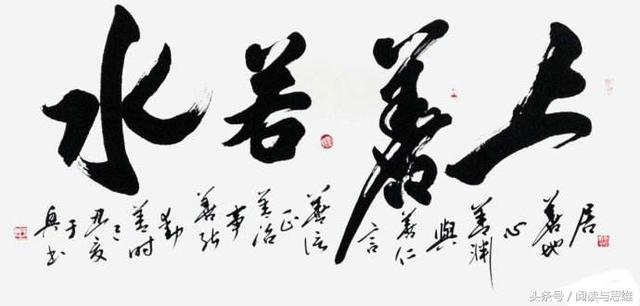 上善若水
居善地
心善渊
與善仁
言善信
正善治
事善能
动善时
头条号 / 阅读与思维